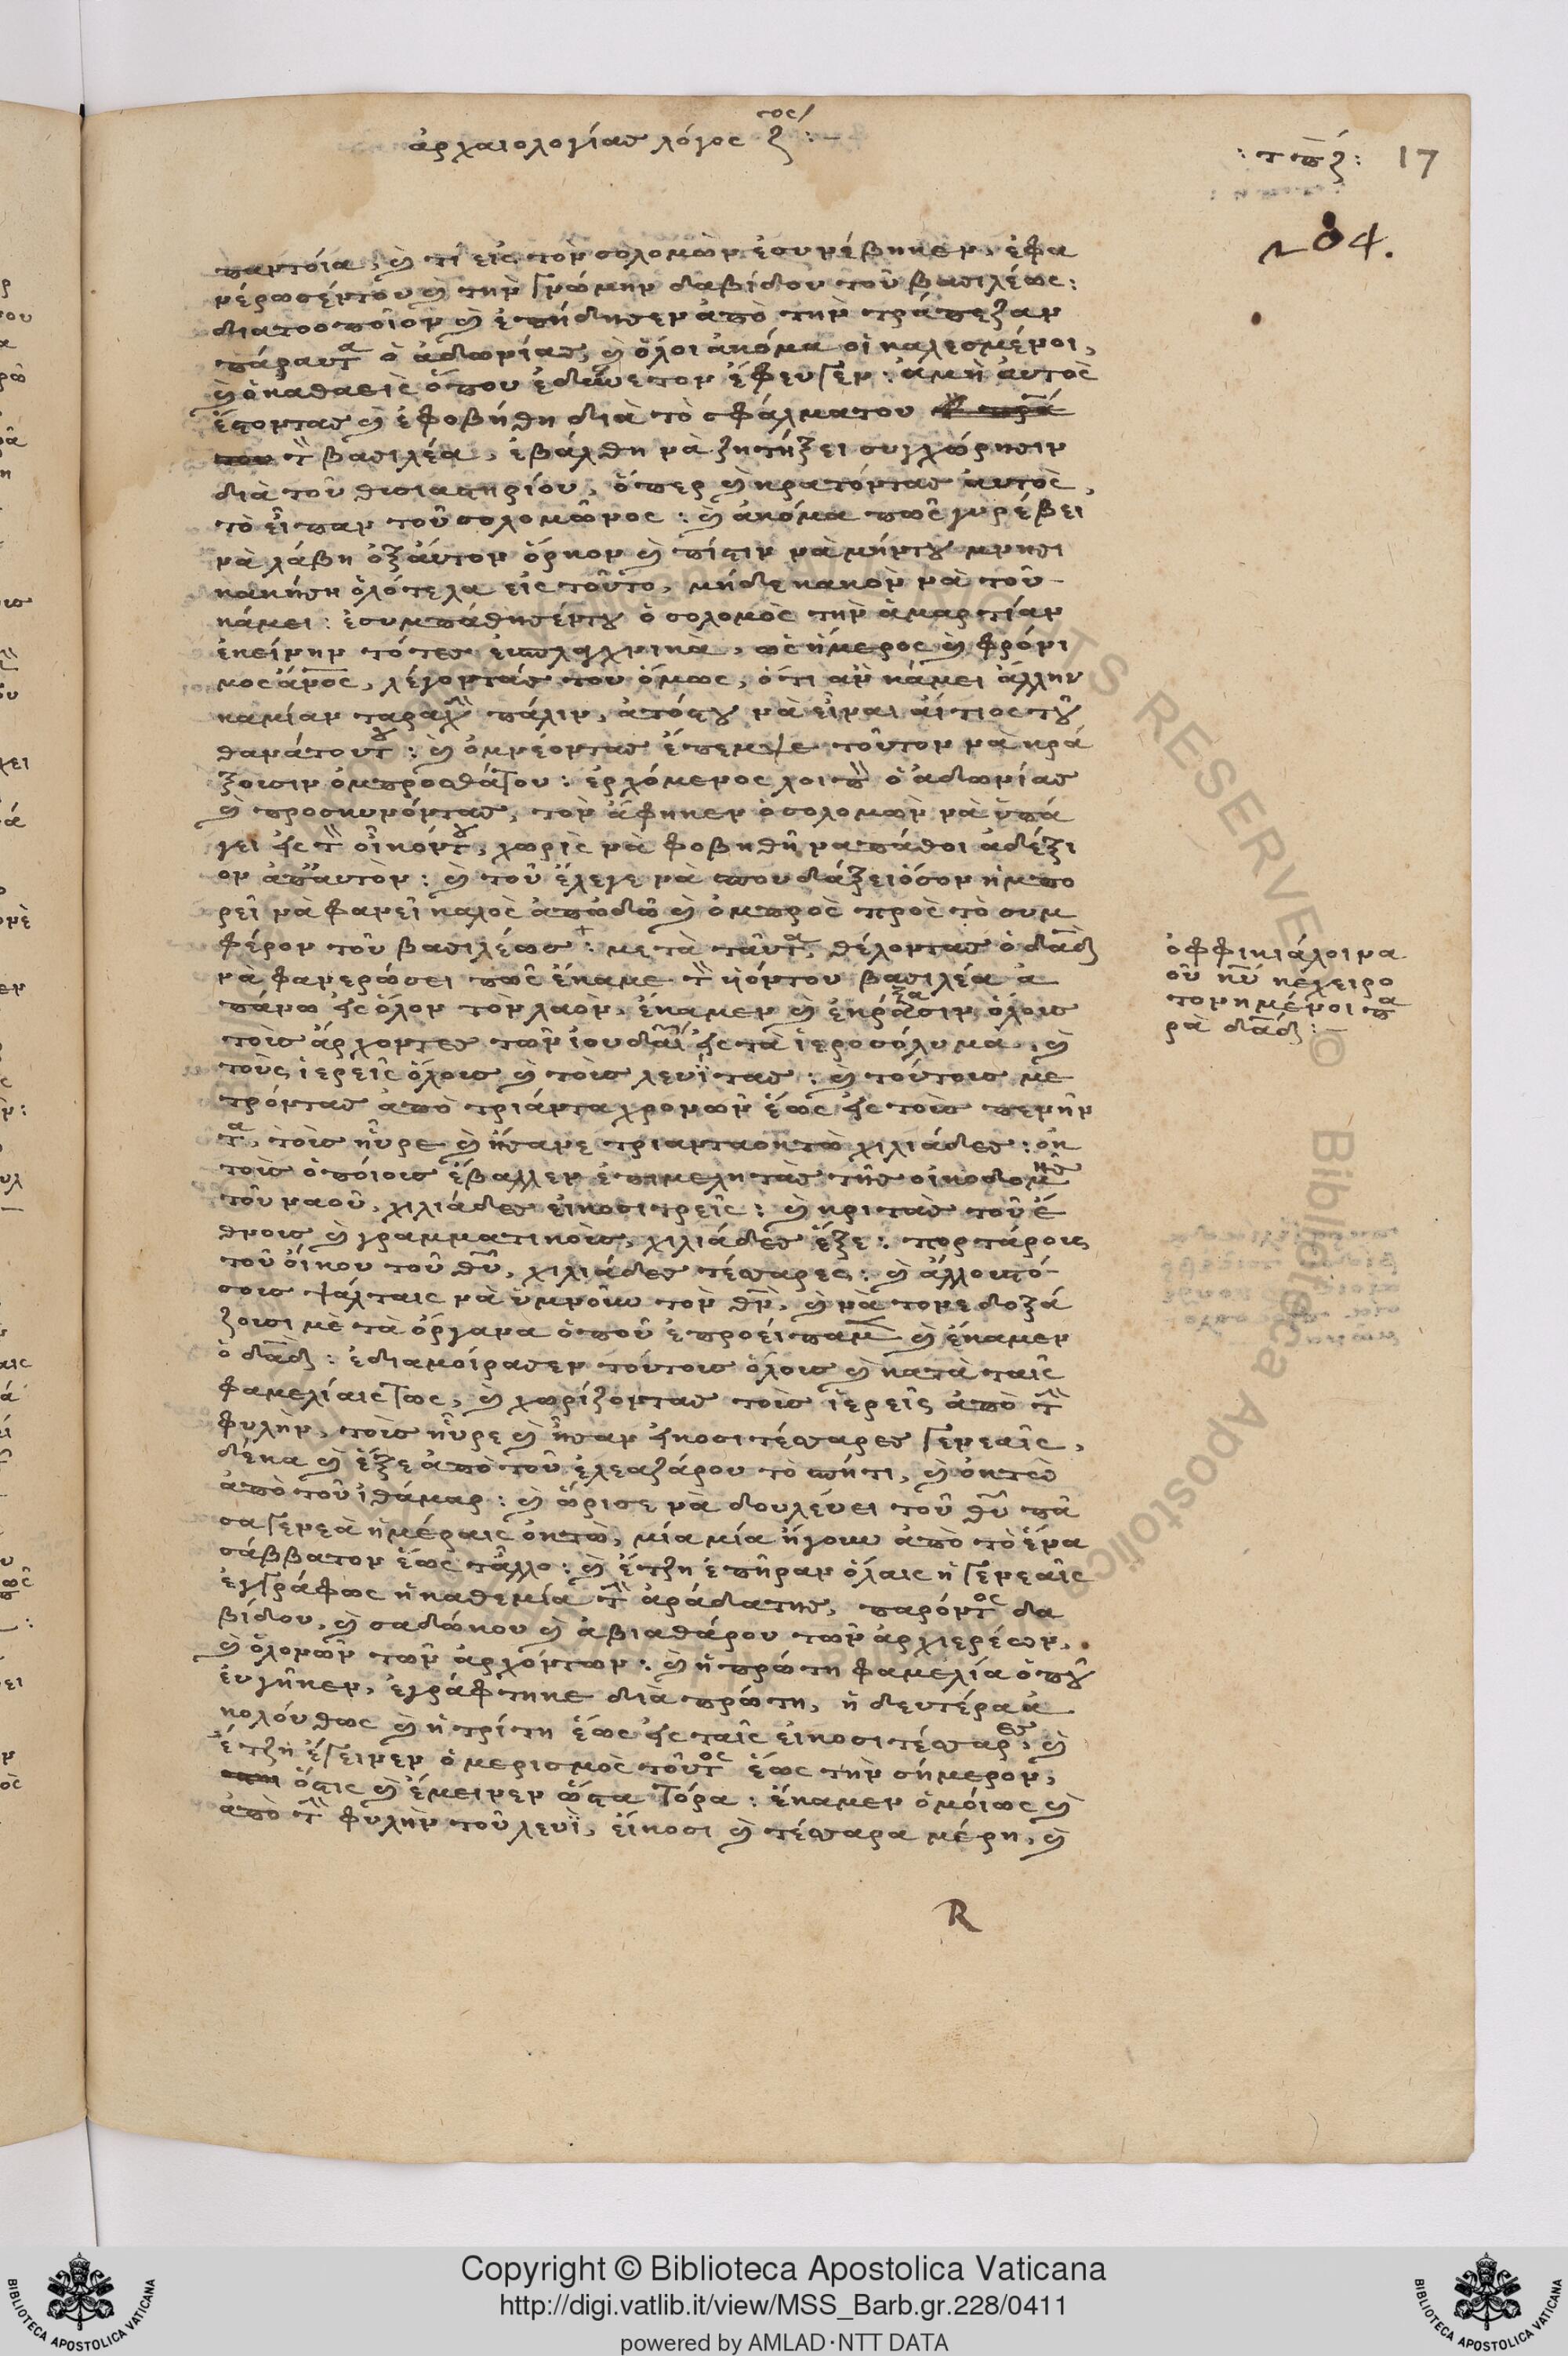 ἀρχαιολογίας λόγος ζ τος :
: τπζ : 17
204.
παντοῖα, καὶ τί εἰς τὸν σολομὼν ἐσυνέβηκεν, ἐφα
νέρωσέντου καὶ τὴν γνώμην δαβίδου τοῦ βασιλέως :
διατοοποῖον καὶ ἐπήδησεν ἀπὸ τὴν τράπεζαν
πάραυτα ὁ ἀδωνίας, καὶ ὅλοι ἀκόμα οἱ καλεσμένοι,
καὶ ὁκαθαεὶς ὅπου ἐδιάβετον ἔφευγεν : ἀμὴ αὐτὸς
ἔσοντας καὶ ἐφοβήθη διὰ τὸ σφάλματου
τὸν βασιλέα, ἐβάλθη νὰ ζητήξει συγχώρησιν
διὰ τοῦ θυσιαστηρίου, ὅπερ καὶ κρατόντας αὐτὸς,
τὸ εἶπαν τοῦ σολομῶνος : καὶ ἀκόμα πῶς γυρέβει
νὰ λάβη ὀξαύτον ὅρκον καὶ πίστιν νὰ μήντου μνησι
κακήση ὁλότελα εἰς τοῦτο, μήδε κακὸν νὰ τοῦ
κάμει : ἐσυμπάθησέντου ὁ σολομὸς τὴν ἁμαρτίαν
ἐκείνην τότες εὐσπλαχνικὰ, ὡς ἥμερος καὶ φρόνι
μος ἄνος, λέγοντάς του ὅμως, ὅτι ἂν κάμει ἄλλην
καμίαν ταραχὴν πάλιν, ἀπότου νὰ εἶναι αἴτιος τοῦ
θανάτουτου : καὶ ὀμνέοντας ἔπεμψε τοῦτον νὰ κρά
ξουσιν ὀμπροσθάτου : ἐρχόμενος λοιπὸν ὁ ἀδωνίας
καὶ προσκυνόντας, τὸν ἄφηκεν ὁ σολομὼν νὰ ὑπά
γει εἰς τὸν οἰκόντου, χωρὶς νὰ φοβηθῆ να πάθοι ἀδέξι
ον ἀπαυτὸν : καὶ τοῦ ἔλεγε νὰ σπουδάξει ὅσον ἠμπο
ρεῖ νὰ φανεῖ καλὸς ἀπωδῶ καὶ ὀμπρὸς πρὸς τὸ συμ
φέρον τοῦ βασιλέως : μετὰ ταῦτα, θέλοντας ὁ δαδ
νὰ φανερώσει πῶς ἔκαμε τὸν ἡόντου βασιλέα ἀ
πάνω εἰς ὅλον τὸν λαὸν, ἔκαμεν καὶ ἐκράξασιν ὅλους
τοὺς ἄρχοντες τῶν ἰουδαί εἰς τὰ ἱεροσόλυμα, καὶ
τοὺς ἱερεῖς ὅλους καὶ τοὺς λευΐτας : καὶ τούτους με
τρόντας ἀπὸ τριάντα χρονῶν ἕως εἰς τοὺς πενῆν
τα, τοὺς ηὗρε καὶ ἦτανε τριανταοκτὼ χιλιάδες : ὀκ
τοὺς ὁποίους ἔβαλλεν ἐπιμελητὰς τῆς οἰκοδομῆς
τοῦ ναοῦ, χιλιάδες εἰκοσιτρεῖς : καὶ κριτὰς τοῦ ἔ
θνους καὶ γραμματικοὺς, χιλιάδες ἕξε : πορτάρους
τοῦ οἴκου τοῦ θυ, χιλιάδες τέσσαρες : καὶ ἄλλουστό
σους ψάλταις νὰ ὑμνοῦν τὸν θν, καὶ νὰ τονε δοξά
ζουσι μὲ τὰ ὄργανα ὁποῦ ἐπροείπαμεν καὶ ἔκαμεν
ὁ δαδ : ἐδιαμοίρασεν τούτους ὅλους καὶ κατὰ ταῖς
φαμελίαις τως, καὶ χωρίζοντας τοὺς ἱερεῖς ἀπὸ τὴν
φυλὴν, τοὺς ηὗρε καὶ ἦσαν εἰκοσιτέσσαρες γενεαῖς,
δέκα καὶ ἕξε ἀπὸ τοῦ ἐλεαζάρου τὸ σπήτι, καὶ ὀκτὼ
ἀπὸ τοῦ ἰθάμαρ : καὶ ὥρισε νὰ δουλεύει τοῦ θυ πᾶ
σα γενεὰ ἡμέραις ὀκτὼ, μία μία ἤγουν ἀπὸ τὸ ἕνα
σάββατον ἕως τἄλλο : καὶ ἔτζη ἐπῆραν ὅλαις ἡ γενεαῖς
ἐγγράφως ἡ καθεμία τὴν ἀράδατης, παρόντος δα
βίδου, καὶ σαδώκου καὶ ἀβιαθάρου τῶν ἀρχιερέων,
καὶ ὁλονῶν τῶν ἀρχόντων : καὶ ἡ πρώτη φαμελία ὁποῦ
εὐγῆκεν, ἐγράφτηκε διὰ πρώτη, ἡ δευτέρα ἀ
κολούθως καὶ ἡ τρίτη ἕως εἰς ταῖς εἰκοσιτέσσαρες, καὶ
ἔτζη ἔγεινεν ὁ μερισμὸς τοῦτος ἕως τὴν σήμερον,
ὅστις καὶ ἔμεινεν ὥστα τόρα : ἔκαμεν ὁμοίως καὶ
ἀπὸ τὴν φυλὴν τοῦ λευῒ, εἴκοσι καὶ τέσσαρα μέρη, καὶ
ὀφφικιάλοι να
οῦ κεχειρο
τονημένοι πα
ρὰ δαδ :
R
Copyright © Biblioteca Apostolica Vaticana
http://digi.vatlib.it/view/MSS_Barb.gr.228/0411
powered by AMLAD·NTT DATA
BIBLIOTECA APOSTOLICA VATICANA
BIBLIOTECA APOSTOLICA VATICANA